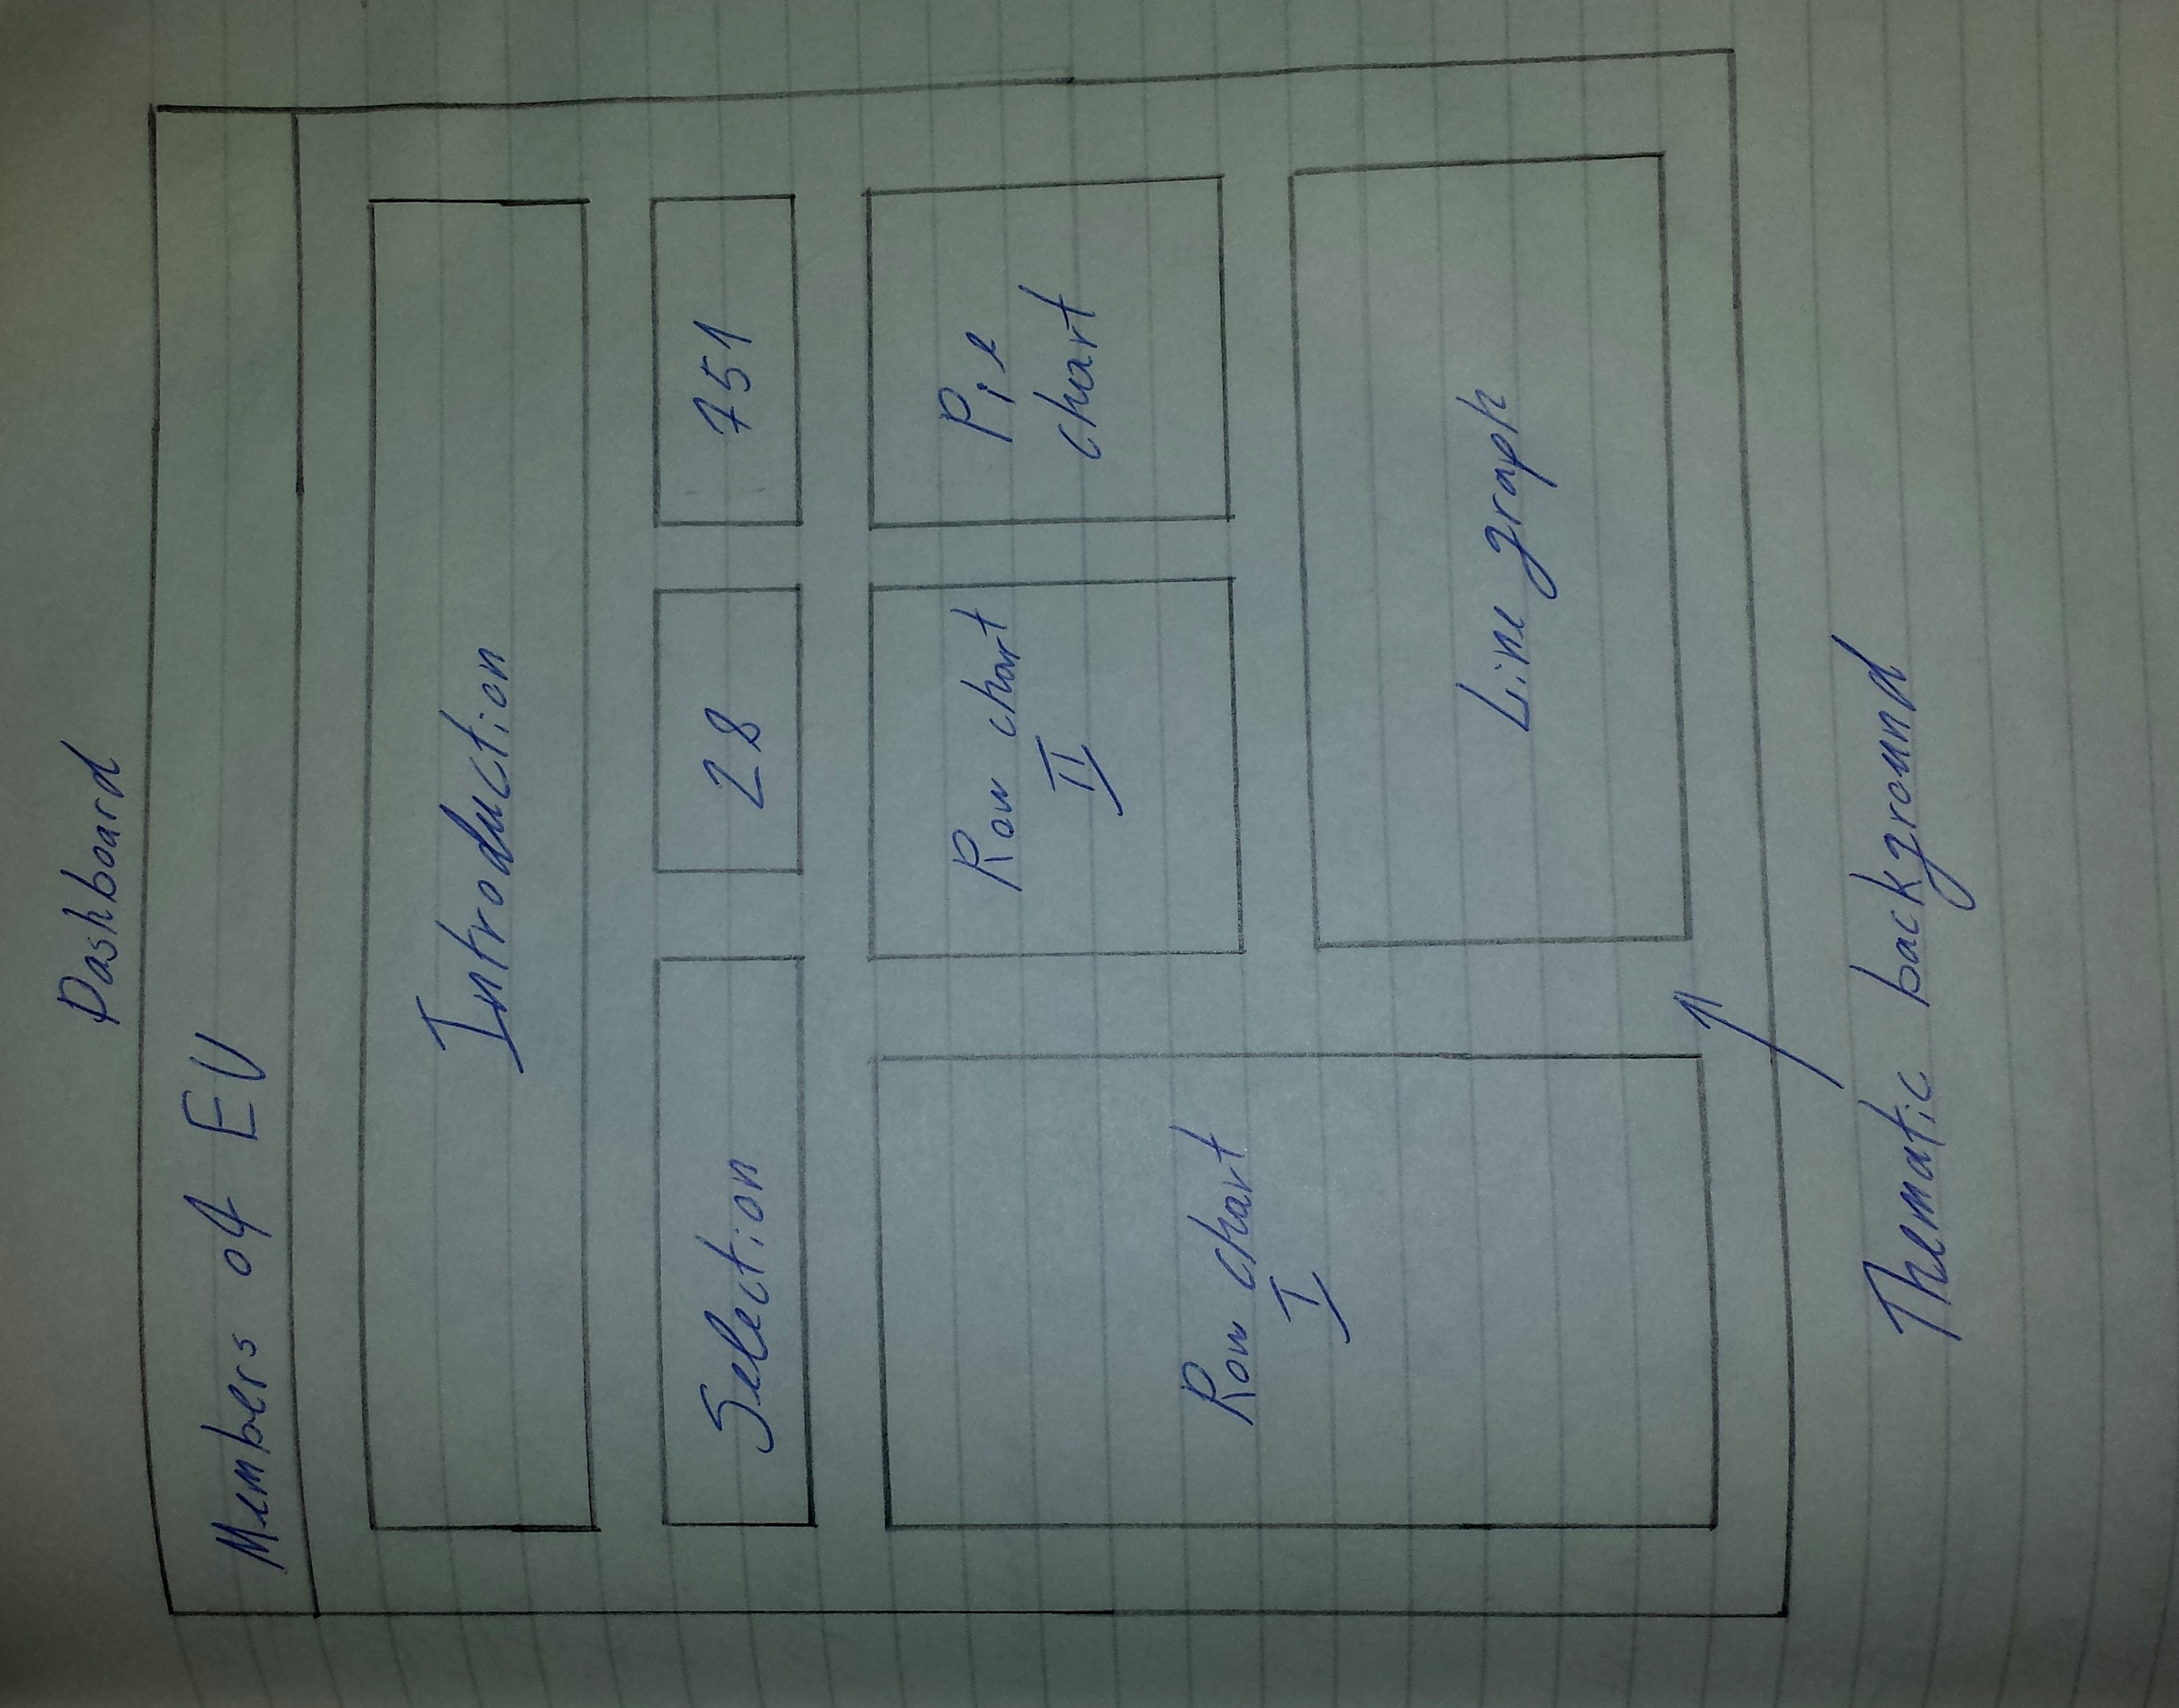 Dashboard
Members of EU
Introduction
Selection
28
751
Row chart
I
Row chart
II
Pie
chart
Line graph
Thematic background